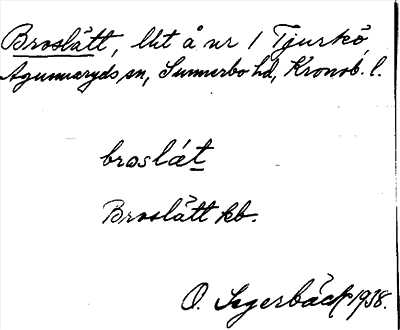 Broslätt, lht å nr 1 Tjurkö,
Agunnaryds sn, Sunnerbo hd, Kronob. l.
broslæt
Broslätt kb.
O. Segerbäck 1938.